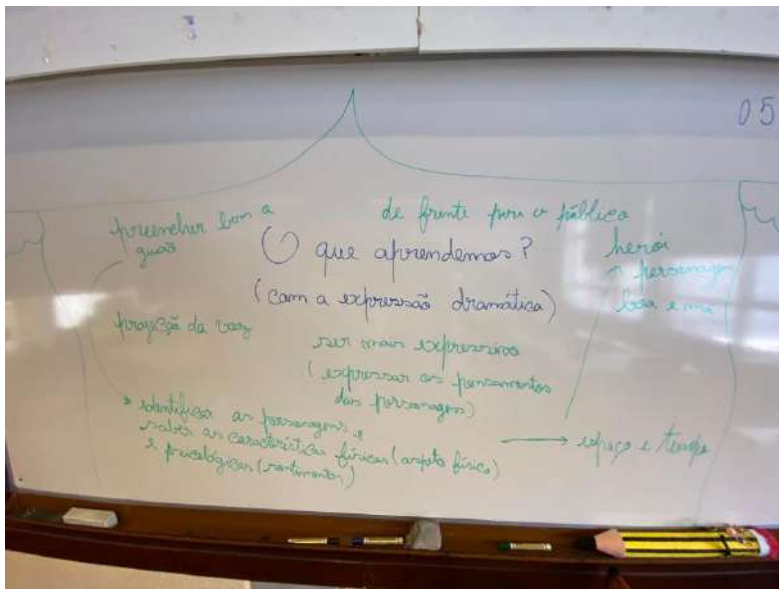 05
preencher bem o
guião
de frente para o público
O que aprendemos?
(com a expressão dramática)
herói
personagem
boa e má
projeção da voz
ser mais expressivo
(expressar os pensamentos
das personagens)
identificar as personagens e
saber as características físicas (aspeto físico)
e psicológicas (sentimentos)
espaço e tempo